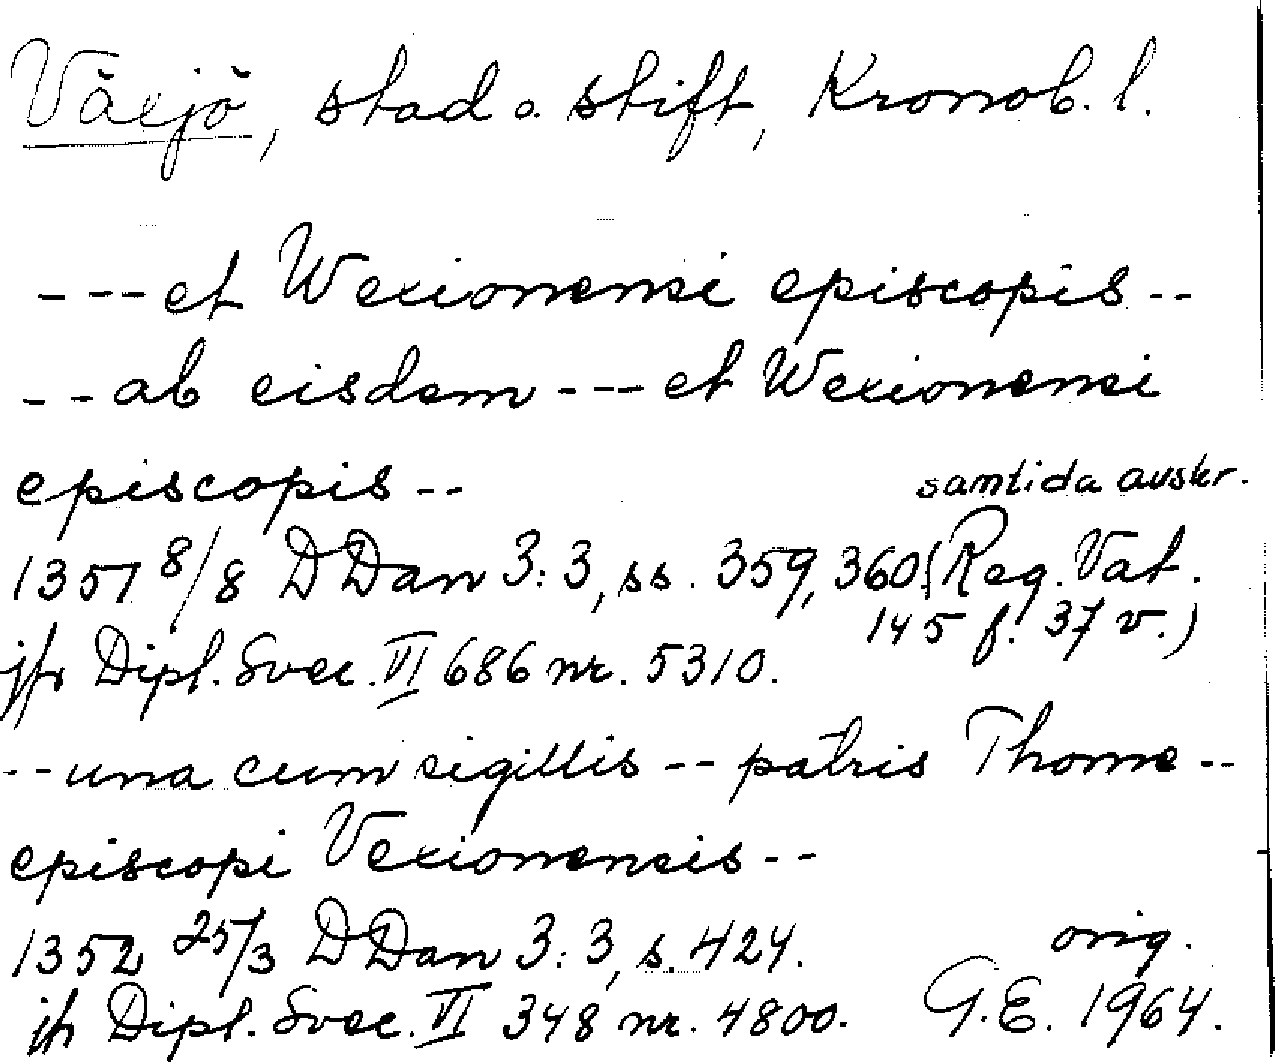 Växjö, stad o. stift, Kronob. l.
--- et Wexionensi episcopis --
-- ab eisdem --- et Wexionensi
episcopis --
samtida avskr.
1351 8/8 DDan 3:3, ss. 359, 360 (Reg. Vat.
145 f. 37 v.)
jfr Dipl. Svec. VI 686 nr. 5310.
-- una cum sigillis -- patris Thome --
episcopi Vexionensis --
1352 25/3 DDan 3:3, s. 424. orig.
jfr Dipl. Svec. VI 348 nr. 4800. G.E. 1964.